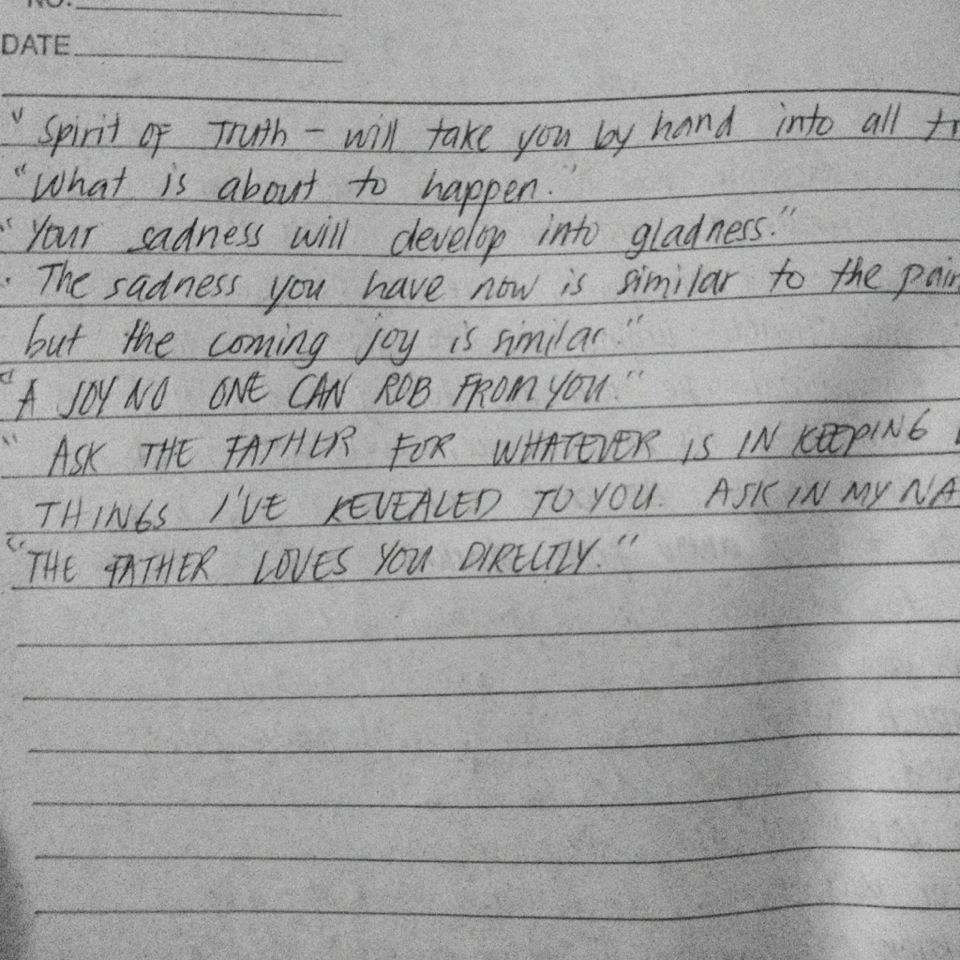 NO.
DATE
" Spirit OF Truth - will take you by hand into all
"What is about to happen."
"Your sadness will develop into gladness."
The sadness you have now is similar to the pain
but the coming joy is similar."
"A JOY NO ONE CAN ROB FROM YOU."
" ASK THE FATHER FOR WHATEVER IS IN KEEPING
THINGS I'VE REVEALED TO YOU. ASK IN MY NA
"THE FATHER LOVES YOU DIRECTLY."